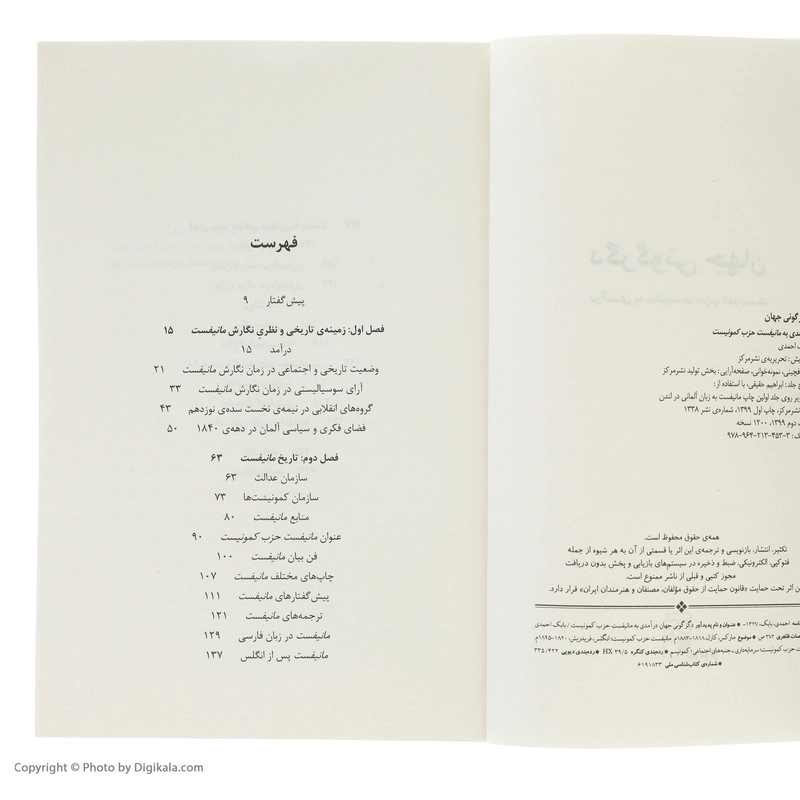 گونی جهان
دی به مانیفست حزب کمونیست
احمدی
تحریریه‌ی نشرمرکز
نمونه‌خوانی، صفحه‌آرایی: بخش تولید نشرمرکز
جلد: ابراهیم حقیقی، با استفاده از:
روی جلد اولین چاپ مانیفست به زبان آلمانی در لندن
نشرمرکز، چاپ اول ۱۳۹۹، شماره‌ی نشر ۱۳۳۸
دوم ۱۳۹۹، ۱۲۰۰ نسخه
۹۷۸-۹۶۴-۲۱۳-۴۵۳-۳
همه‌ی حقوق محفوظ است.
تکثیر، انتشار، بازنویسی و ترجمه‌ی این اثر یا قسمتی از آن به هر شیوه از جمله
فتوکپی، الکترونیکی، ضبط و ذخیره در سیستم‌های بازیابی و پخش بدون دریافت
مجوز کتبی و قبلی از ناشر ممنوع است.
اثر تحت حمایت «قانون حمایت از حقوق مؤلفان، مصنفان و هنرمندان ایران» قرار دارد.
احمدی، بابک، ۱۳۲۷- ● عنوان و نام پدیدآور دگرگونی جهان درآمدی به مانیفست حزب کمونیست / بابک احمدی
ظاهری ۲۷۲ ص. ● موضوع مارکس، کارل ۱۸۱۸-۱۸۸۳م. مانیفست حزب کمونیست؛ انگلس، فریدریش، ۱۸۲۰-۱۸۹۵م
حزب کمونیست؛ سرمایه‌داری ــ جنبه‌های اجتماعی؛ کمونیسم ● رده‌بندی کنگره HX ۳۹/۵ ● رده‌بندی دیویی ۳۳۵/۴۲۲
● شماره‌ی کتاب‌شناسی ملی ۶۱۹۱۸۳۳
فهرست
پیش‌گفتار ۹
فصل اول: زمینه‌ی تاریخی و نظری نگارش مانیفست ۱۵
درآمد ۱۵
وضعیت تاریخی و اجتماعی در زمان نگارش مانیفست ۲۱
آرای سوسیالیستی در زمان نگارش مانیفست ۳۳
گروه‌های انقلابی در نیمه‌ی نخست سده‌ی نوزدهم ۴۳
فضای فکری و سیاسی آلمان در دهه‌ی ۱۸۴۰ ۵۰
فصل دوم: تاریخ مانیفست ۶۳
سازمان عدالت ۶۳
سازمان کمونیست‌ها ۷۳
منابع مانیفست ۸۰
عنوان مانیفست حزب کمونیست ۹۰
فن بیان مانیفست ۱۰۰
چاپ‌های مختلف مانیفست ۱۰۷
پیش‌گفتارهای مانیفست ۱۱۱
ترجمه‌های مانیفست ۱۲۱
مانیفست در زبان فارسی ۱۲۹
مانیفست پس از انگلس ۱۳۷
Copyright © Photo by Digikala.com